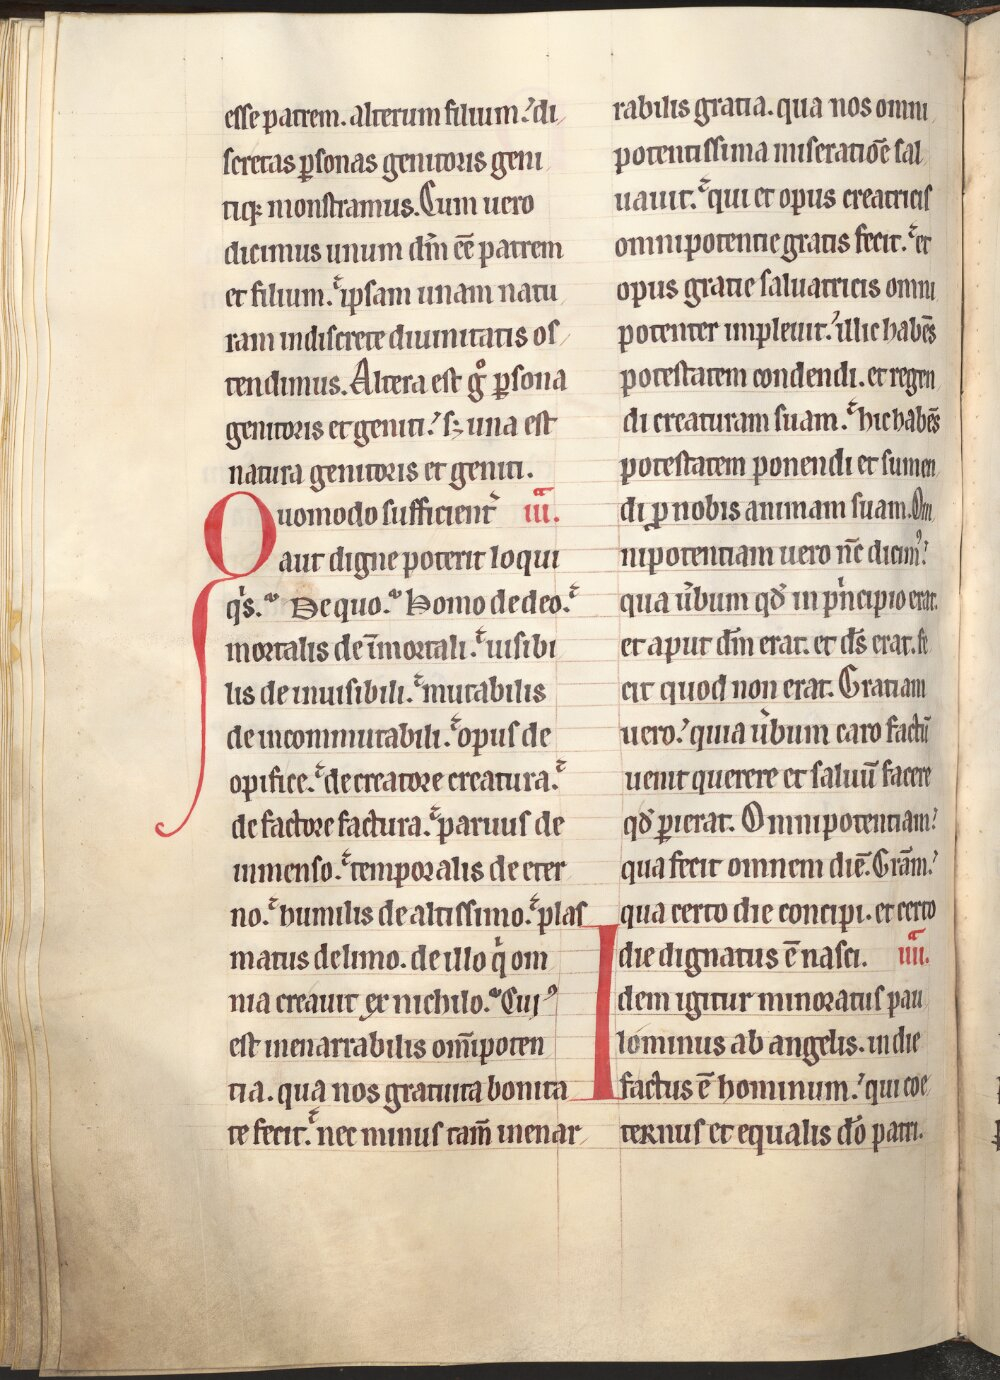 esse patrem. alterum filium? di
scretas ꝑsonas genitoris geni
tiqꝫ monstramus. Cum uero
dicimus unum dm̄ ee̅ patrem
et filium. ipsam unam natu
ram indiscrete diuinitatis os
tendimus. Altera est gͦ ꝑsona
genitoris et geniti? sꝫ una est
natura genitoris et geniti.
Quomodo sufficient᷑ iiiᵃ.
aut digne poterit loqui
qͥs. De quo. Homo de deo.
mortalis de īmortali. uisibi
lis de inuisibili. mutabilis
de incommutabili. opus de
opifice. de creatore creatura.
de factore factura. paruus de
inmenso. temporalis de eter
no. humilis de altissimo. plas
matus de limo. de illo qͥ om
nia creauit ex nichilo. Cuiꝰ
est inenarrabilis om̄ipoten
tia. qua nos gratuita bonita
te fecit. nec minus tam̄ inenar
rabilis gratia. qua nos omni
potentissima miseratiōe sal
uauit. qui et opus creatricis
omnipotentie gratis fecit. et
opus gratie saluatricis omni
potenter impleuit? illic habēs
potestatem condendi. et regen
di creaturam suam. hic habēs
potestatem ponendi et sumen
di ꝓ nobis animam suam. Om
nipotentiam uero nc̄ dicimꝰ?
qua u̔bum qđ in pͥncipio erat.
et aput dm̄ erat. et ds̄ erat. fe
cit quod non erat. Gratiam
uero? quia u̔bum caro factū
uenit querere et saluū facere
qđ ꝑierat. Omnipotentiam?
qua fecit omnem diē. Grām?
qua certo die concipi. et certo
die dignatus ē nasci. iiiiᵃ.
Idem igitur minoratus pau
lominus ab angelis. in die
factus ē hominum? qui coe
ternus et equalis dō patri.